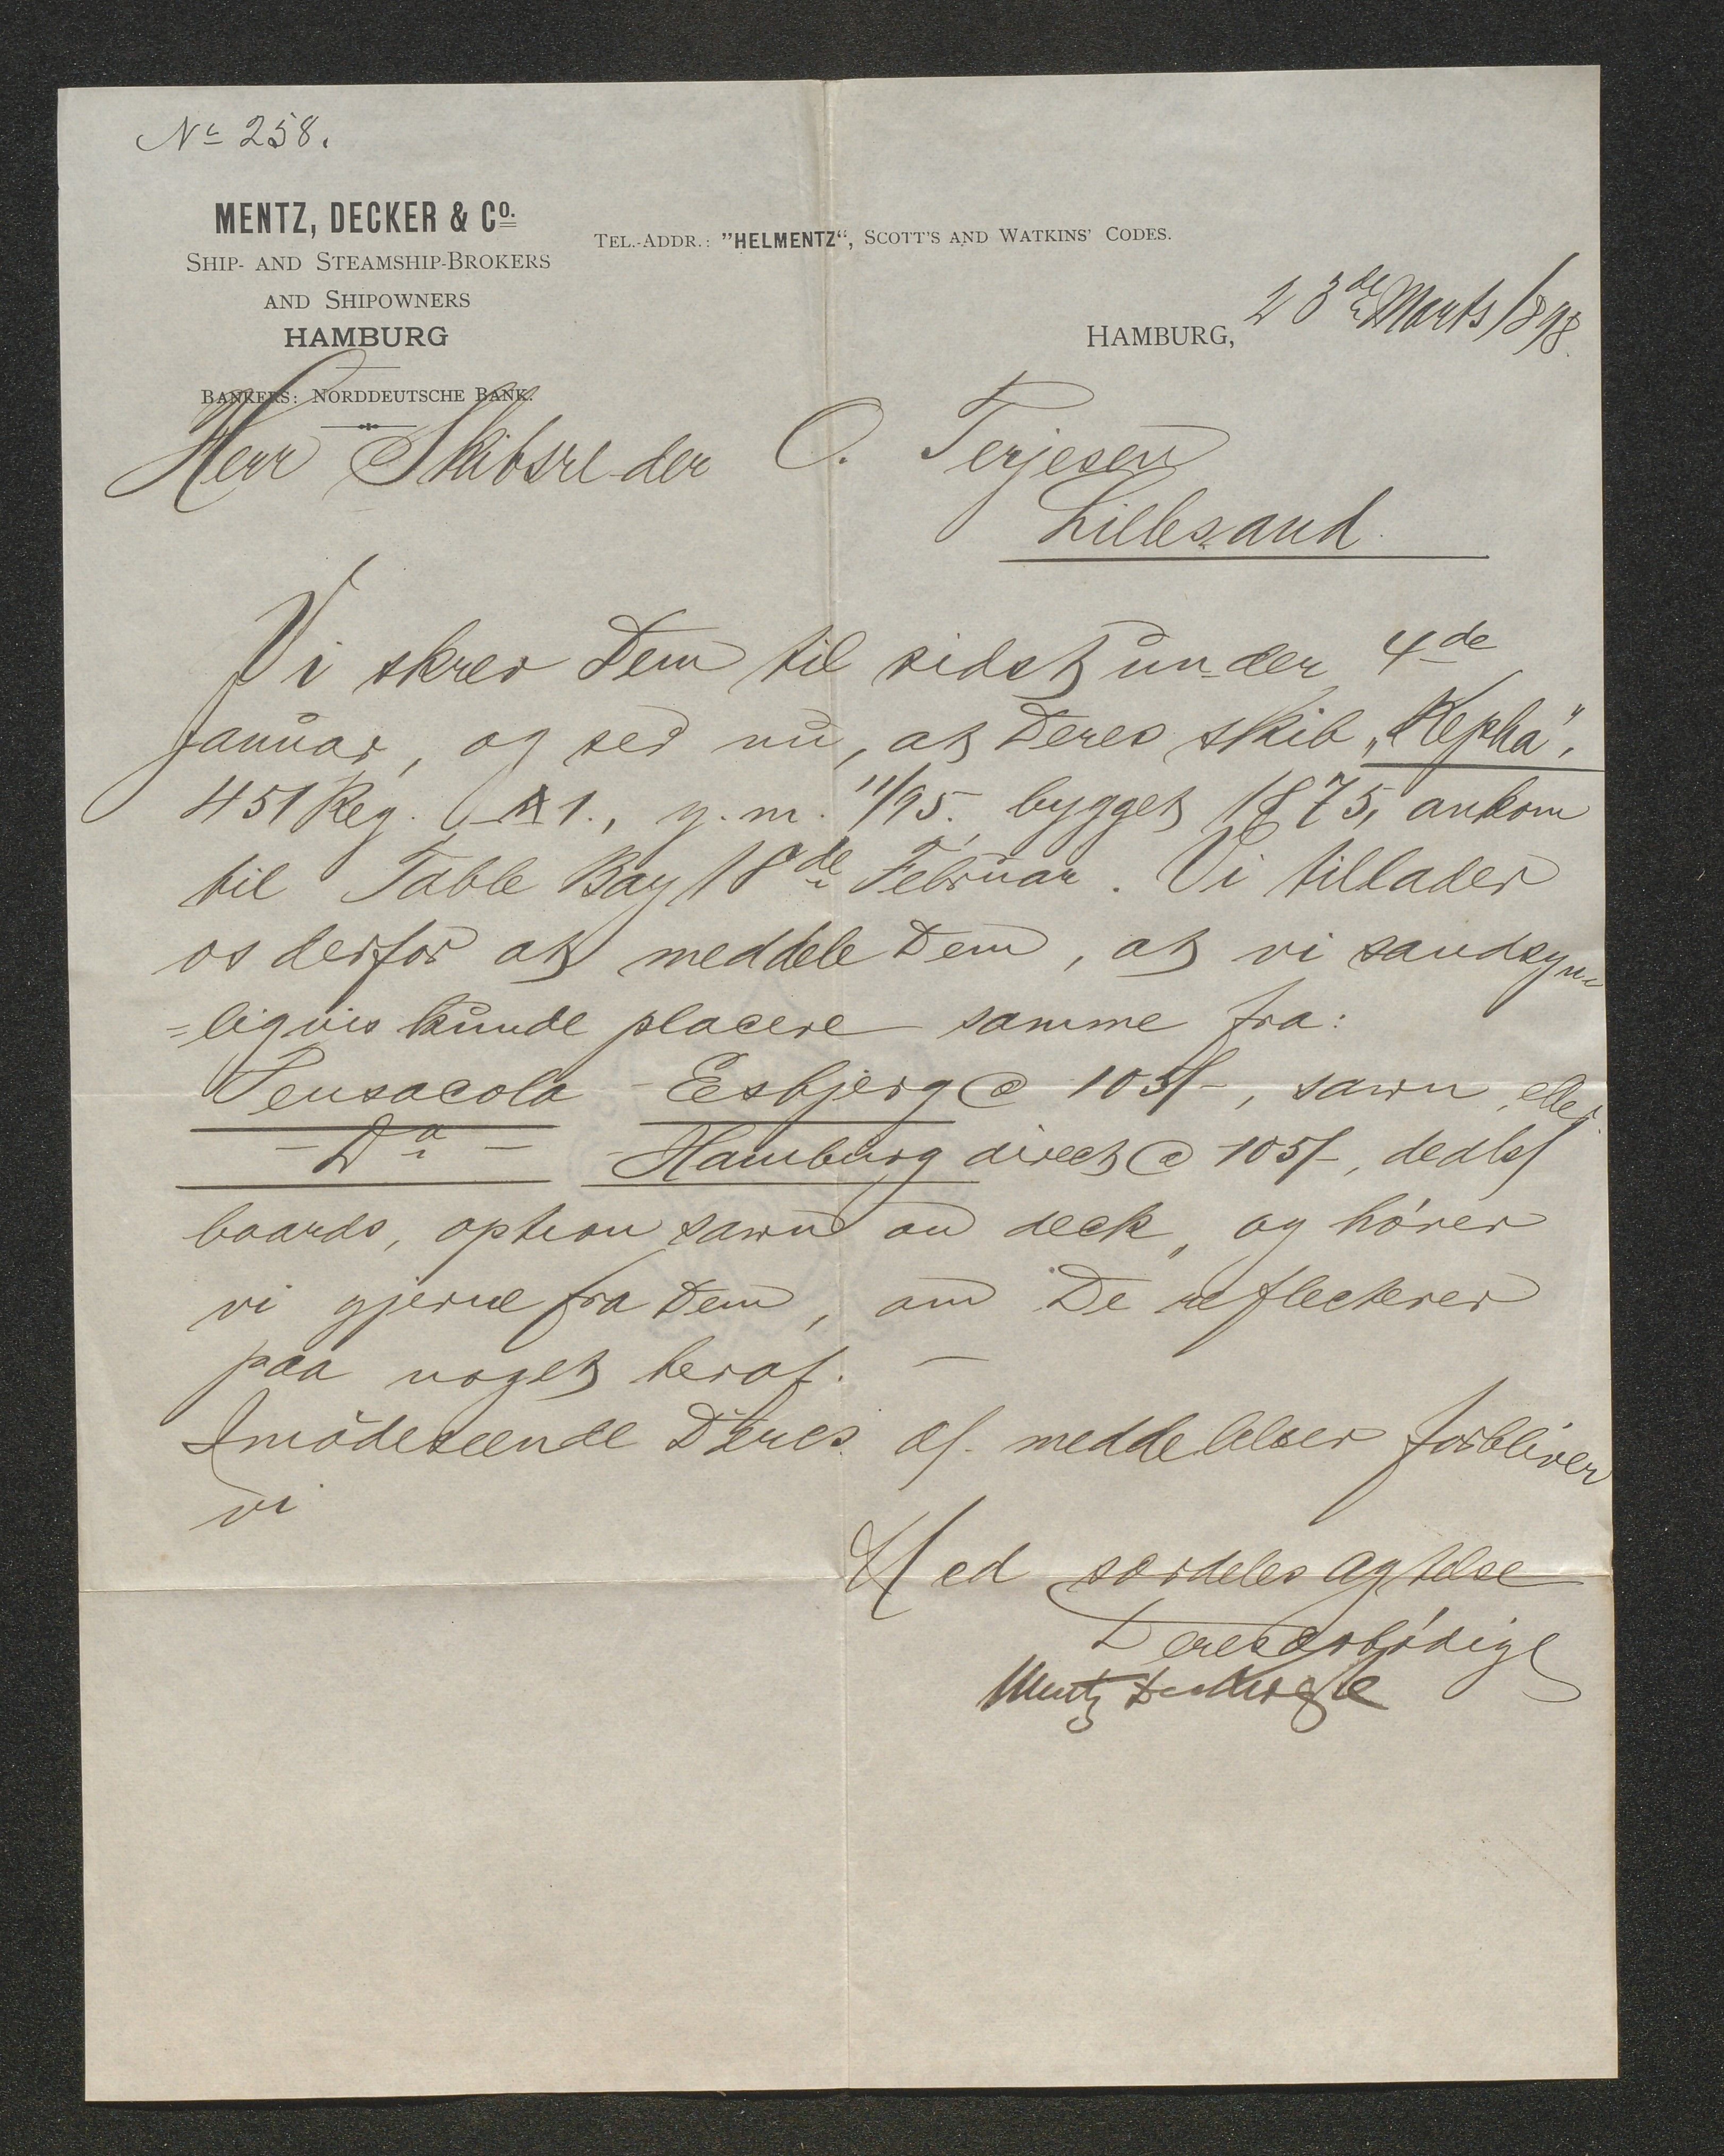 No 258.
MENTZ, DECKER & Co.
SHIP- AND STEAMSHIP-BROKERS
AND SHIPOWNERS
HAMBURG
BANKERS: NORDDEUTSCHE BANK.
TEL.-ADDR.: "HELMENTZ“, SCOTT'S AND WATKINS' CODES.
HAMBURG, 23de Marts 1898.
Herr Skibsreder O. Terjesen
Lillesand.
Vi skrev Dem til sidst under 4de
Januar, og ser nu, at Deres skib „Kepha",
451 Reg. A 1., y. m. 11/95., bygget 1875, ankom
til Table Bay 18de Februar. Vi tillader
os derfor at meddele Dem, at vi sandsyn-
=ligvis kunde placere samme fra:
Pensacola - Esbjerg @ 105/-, sawn, eller
- Do. - - Hamburg direct @ 105/-, deals/
boards, option sawn on deck, og hörer
vi gjerne fra Dem, om De reflecterer
paa noget heraf. -
Imödeseende Deres af. meddelelser forbliver
vi
Med særdeles Agtelse
Deres ærbödige
Mentz Decker & Co